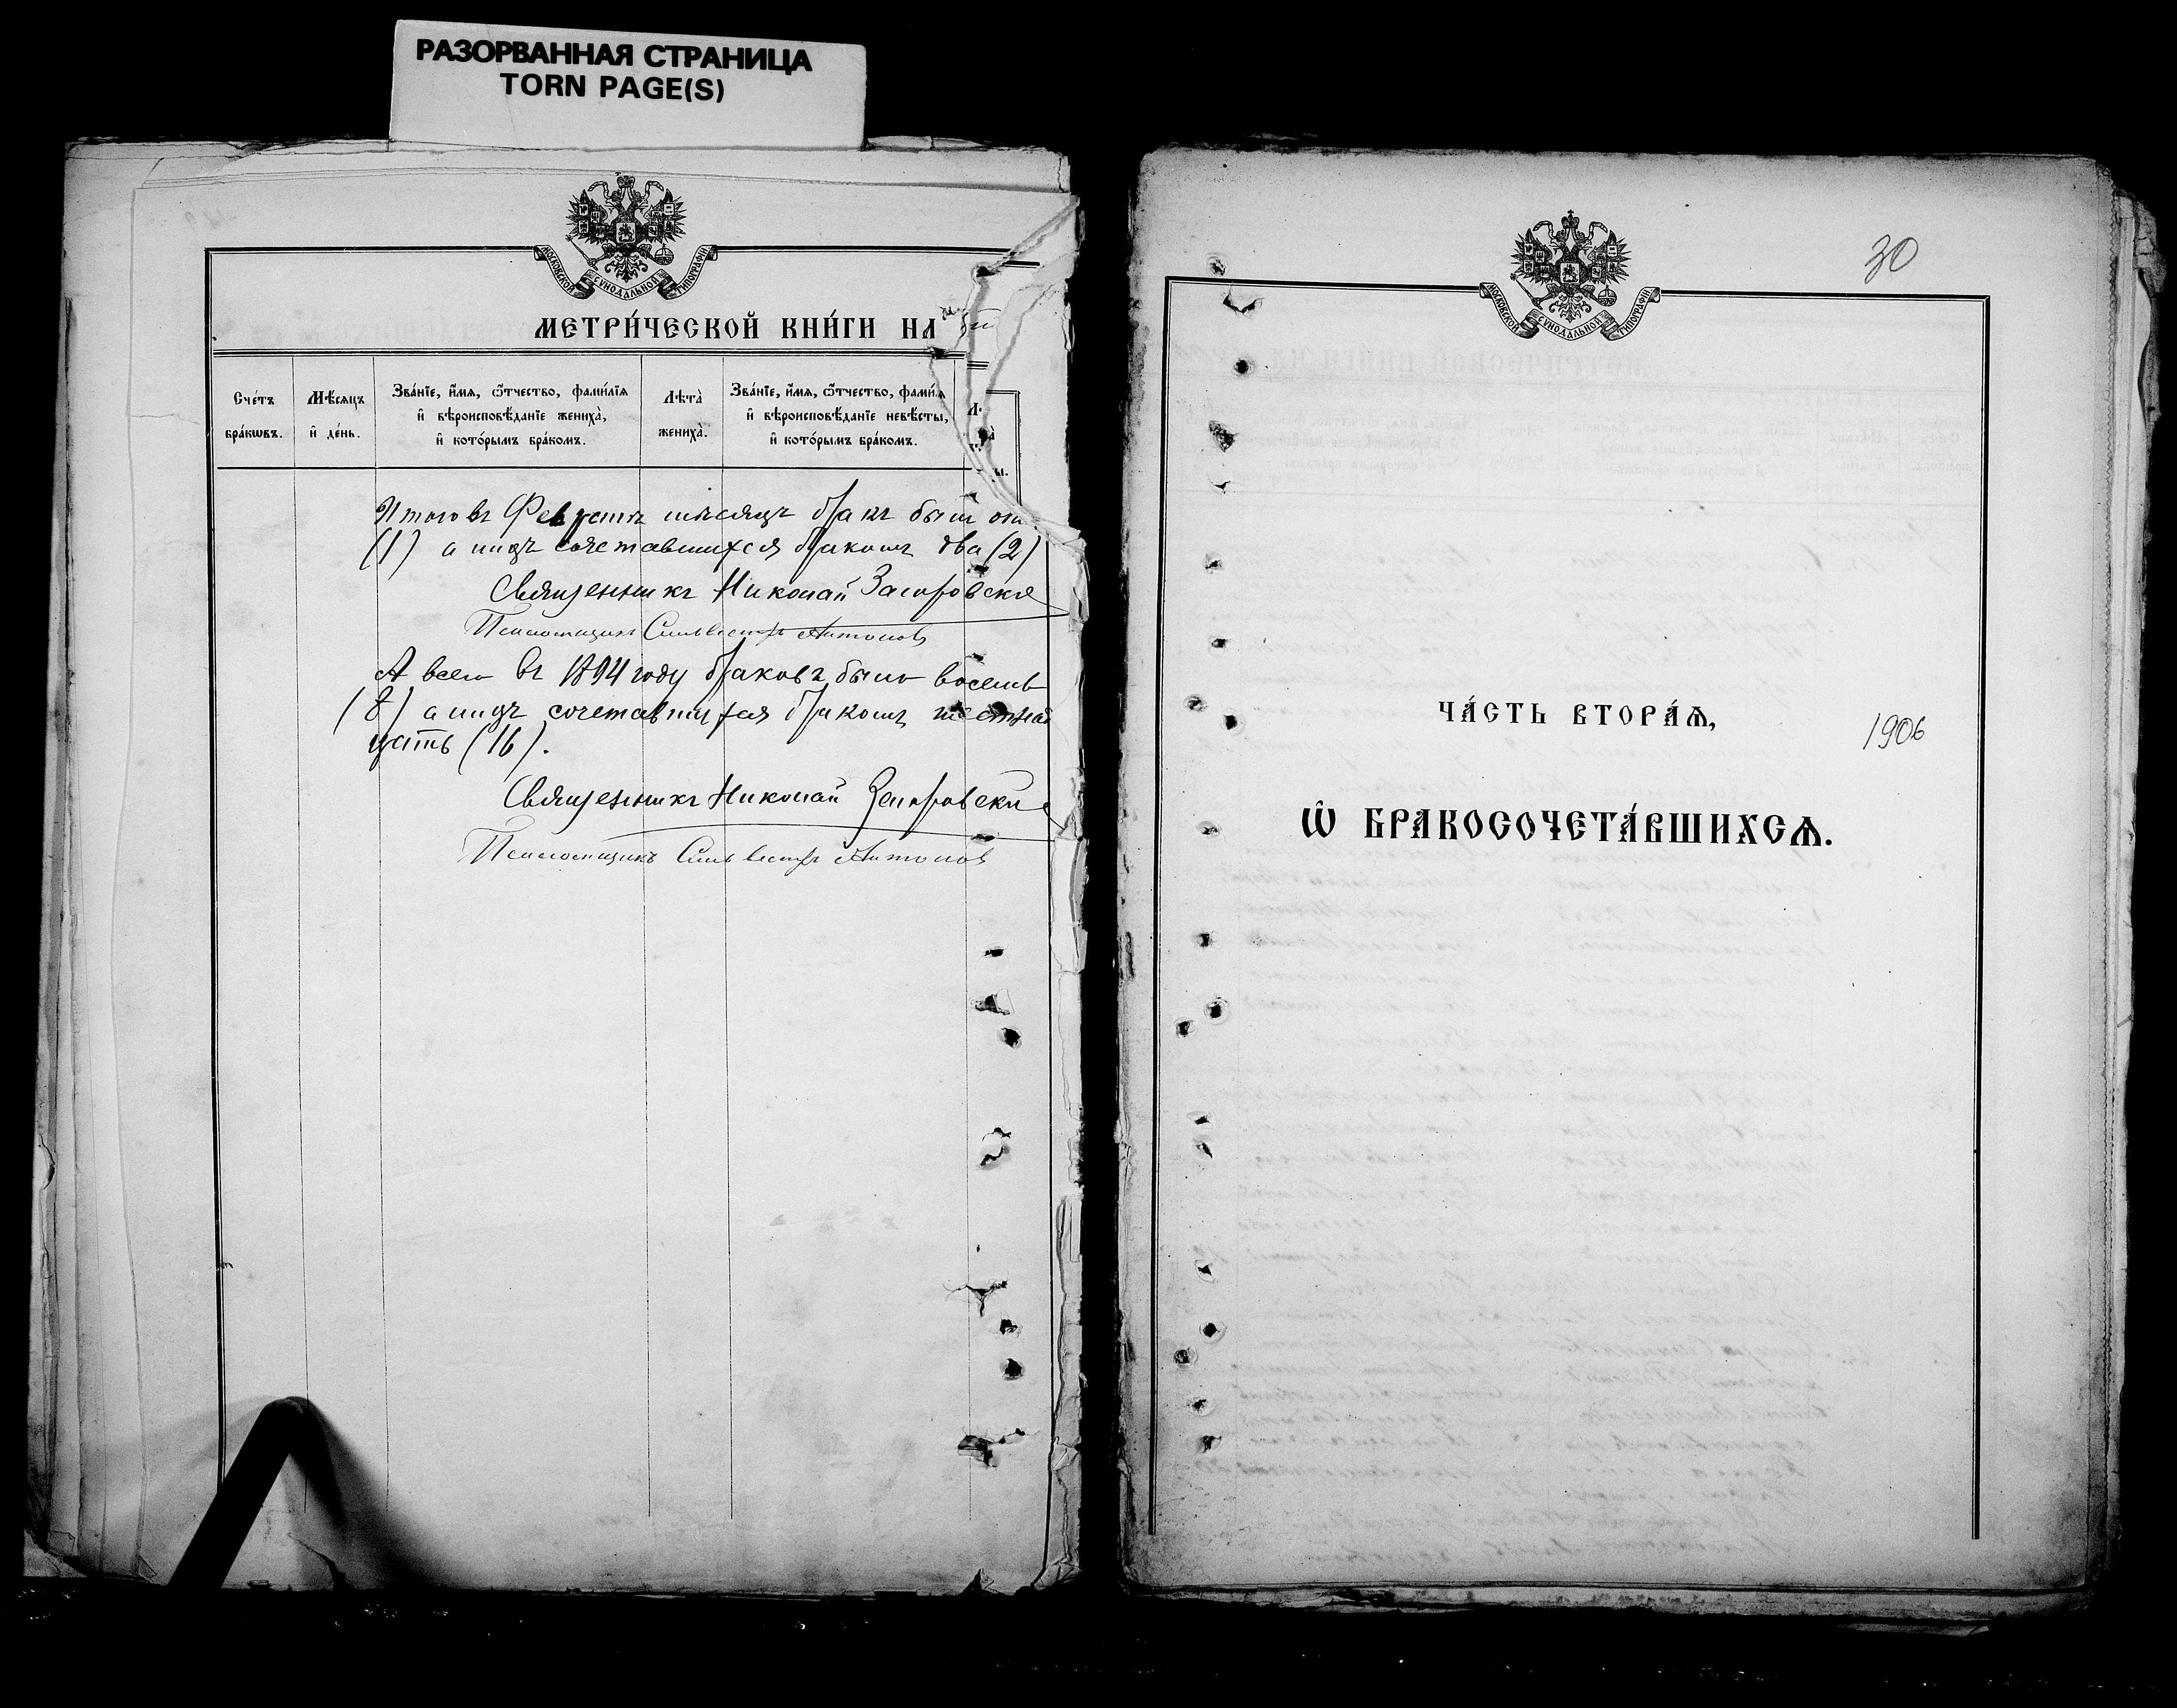 РАЗОРВАННАЯ СТРАНИЦА
TORN PAGE(S)
МОСКОВСКОЙ СѴНОДАЛЬНОЙ ТИПОГРАФІИ
МЕТРИ́ЧЕСКОЙ КНИ́ГИ НА
Сче́тъ
бра́кѡвъ.
Мѣ́сяцъ
и҆ де́нь.
Зва́нїе, и҆́мѧ, ѻ҆́тчество, фами́лїѧ
и҆ вѣроисповѣ́данїе жениха̀,
и҆ кото́рымъ бра́комъ.
Лѣта̀
жениха̀.
Зва́нїе, и҆́мѧ, ѻ҆́тчество, фами́лїѧ
и҆ вѣроисповѣ́данїе невѣ́сты,
и҆ кото́рымъ бра́комъ.
Итого въ Февралѣ мѣсяцѣ бракъ былъ
(1) а лицъ сочетавшихся бракомъ два (2)
Священникъ Николай
Псаломщикъ Сильвестръ Антоновъ
А всего въ 1894 году браковъ было восемь
(8) а лицъ сочетавшихся бракомъ шестнад
цать (16).
Священникъ Николай
Псаломщикъ Сильвестръ Антоновъ
30
МОСКОВСКОЙ СѴНОДАЛЬНОЙ ТИПОГРАФІИ
ЧА́СТЬ ВТОРА́Ѧ,
1906
Ѡ҆ БРАКОСОЧЕТА́ВШИХСѦ.